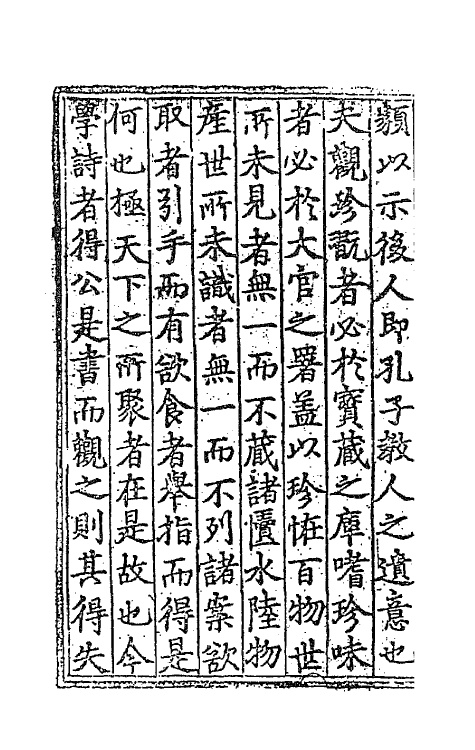 類以示後人即孔子敎人之遺意也
夫觀珍翫者必於寳藏之庫嗜珍味
者必於大官之署盖以珍恠百物世
所未見者無一而不蔵諸匱水陸物
産世所未識者無一而不列諸案欲
取者引手而有欲食者舉指而得是
何也極天下之所聚者在是故也今
學詩者得公是書而觀之則其得失